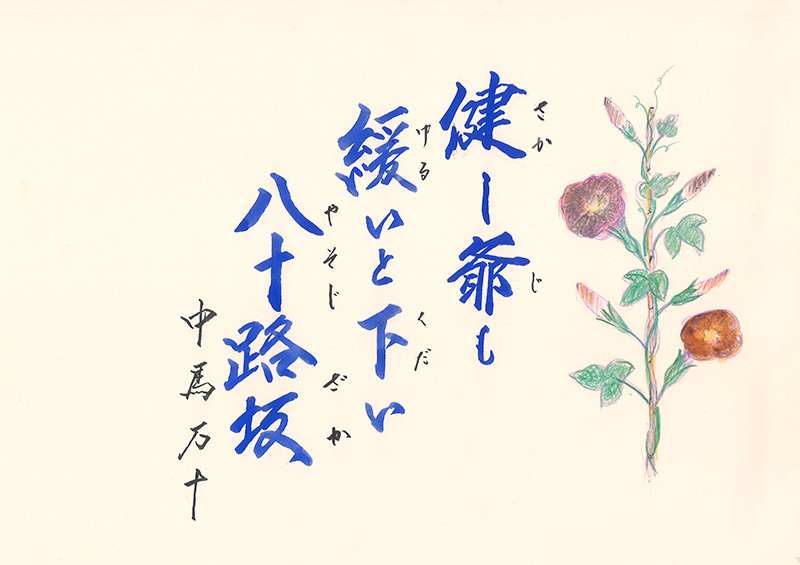 健し爺も
さか じ
緩いと下い
ゆる くだ
八十路坂
やそじ ざか
中馬万十